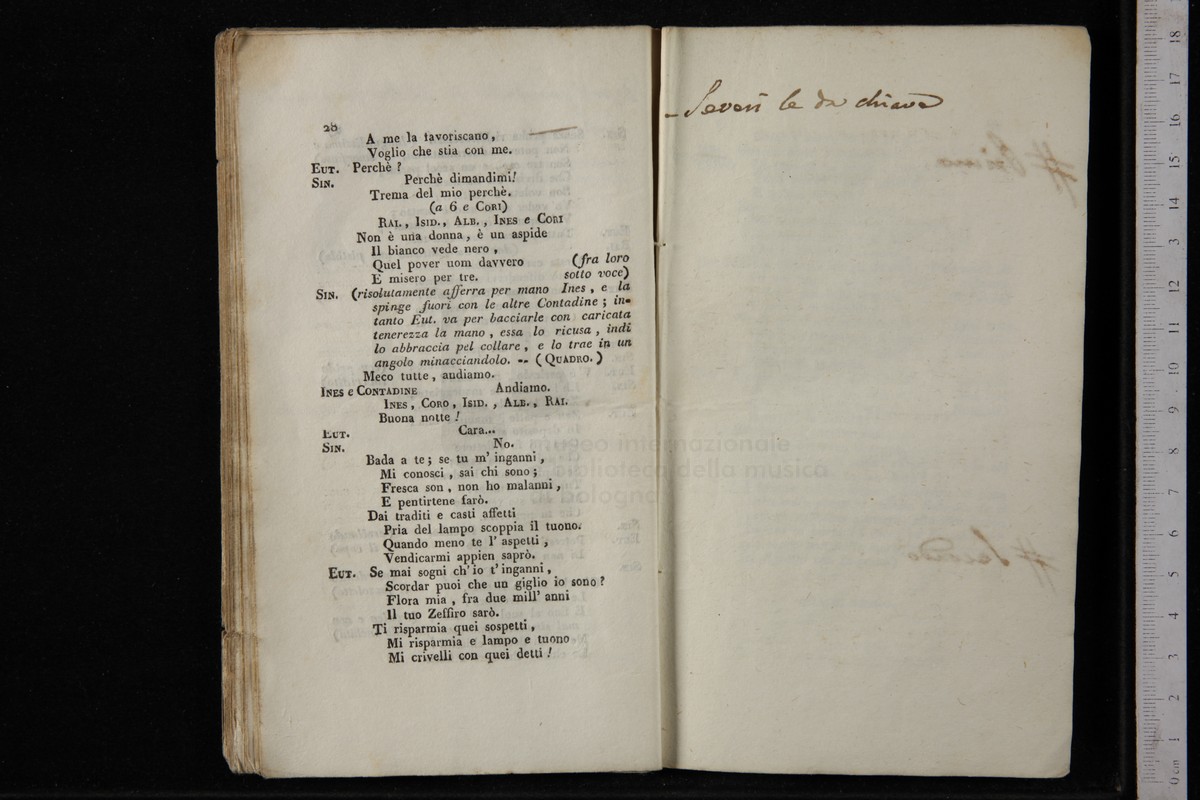 28
A me la favoriscano,
Voglio che stia con me.
EUT. Perchè ?
SIN. Perchè dimandimi!
Trema del mio perchè.
(a 6 e CORI)
RAI., ISID., ALB., INES e CORI
Non è una donna, è un aspide
Il bianco vede nero,
Quel pover uom davvero (fra loro
E misero per tre. sotto voce)
SIN. (risolutamente afferra per mano Ines, e la
spinge fuori con le altre Contadine; in-
tanto Eut. va per bacciarle con caricata
tenerezza la mano, essa lo ricusa, indi
lo abbraccia pel collare, e lo trae in un
angolo minacciandolo. -- (QUADRO.)
Meco tutte, andiamo.
INES e CONTADINE Andiamo.
INES, CORO, ISID., ALB., RAI.
Buona notte!
EUT. Cara...
SIN. No.
Bada a te; se tu m' inganni,
Mi conosci, sai chi sono;
Fresca son, non ho malanni,
E pentirtene farò.
Dai traditi e casti affetti
Pria del lampo scoppia il tuono.
Quando meno te l' aspetti,
Vendicarmi appien saprò.
EUT. Se mai sogni ch' io t' inganni,
Scordar puoi che un giglio io sono?
Flora mia, fra due mill' anni
Il tuo Zeffiro sarò.
Ti risparmia quei sospetti,
Mi risparmia e lampo e tuono
Mi crivelli con quei detti!
le da chiave
museo internazionale
biblioteca della musica
di bologna
0 cm 1 2 3 4 5 6 7 8 9 10 11 12 13 14 15 16 17 18